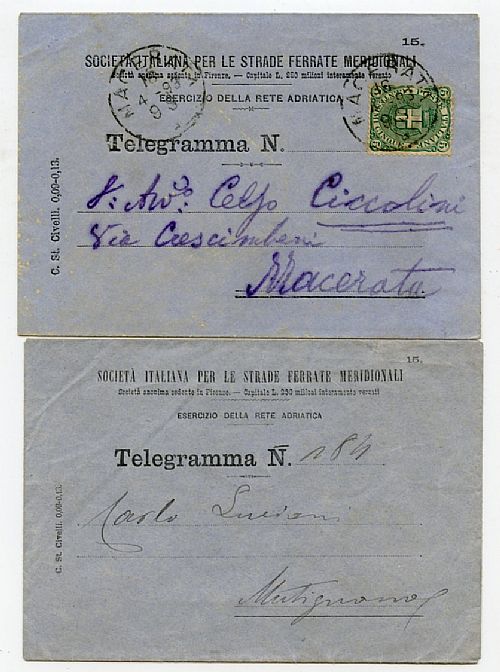 15.
SOCIETÀ ITALIANA PER LE STRADE FERRATE MERIDIONALI
Società anonima sedente in Firenze. — Capitale L. 260 milioni interamente versato
ESERCIZIO DELLA RETE ADRIATICA
MACERATA
Telegramma N.
C. St. Civelli. 0,09-0,13.
S. Avv.º Celso Ciccolini
Via Crescimbeni
Macerata
15.
SOCIETÀ ITALIANA PER LE STRADE FERRATE MERIDIONALI
Società anonima sedente in Firenze. — Capitale L. 260 milioni interamente versati
ESERCIZIO DELLA RETE ADRIATICA
Telegramma N. 184
C. St. Civelli. 0,09-0,13.
Carlo Luciani
Mutignano